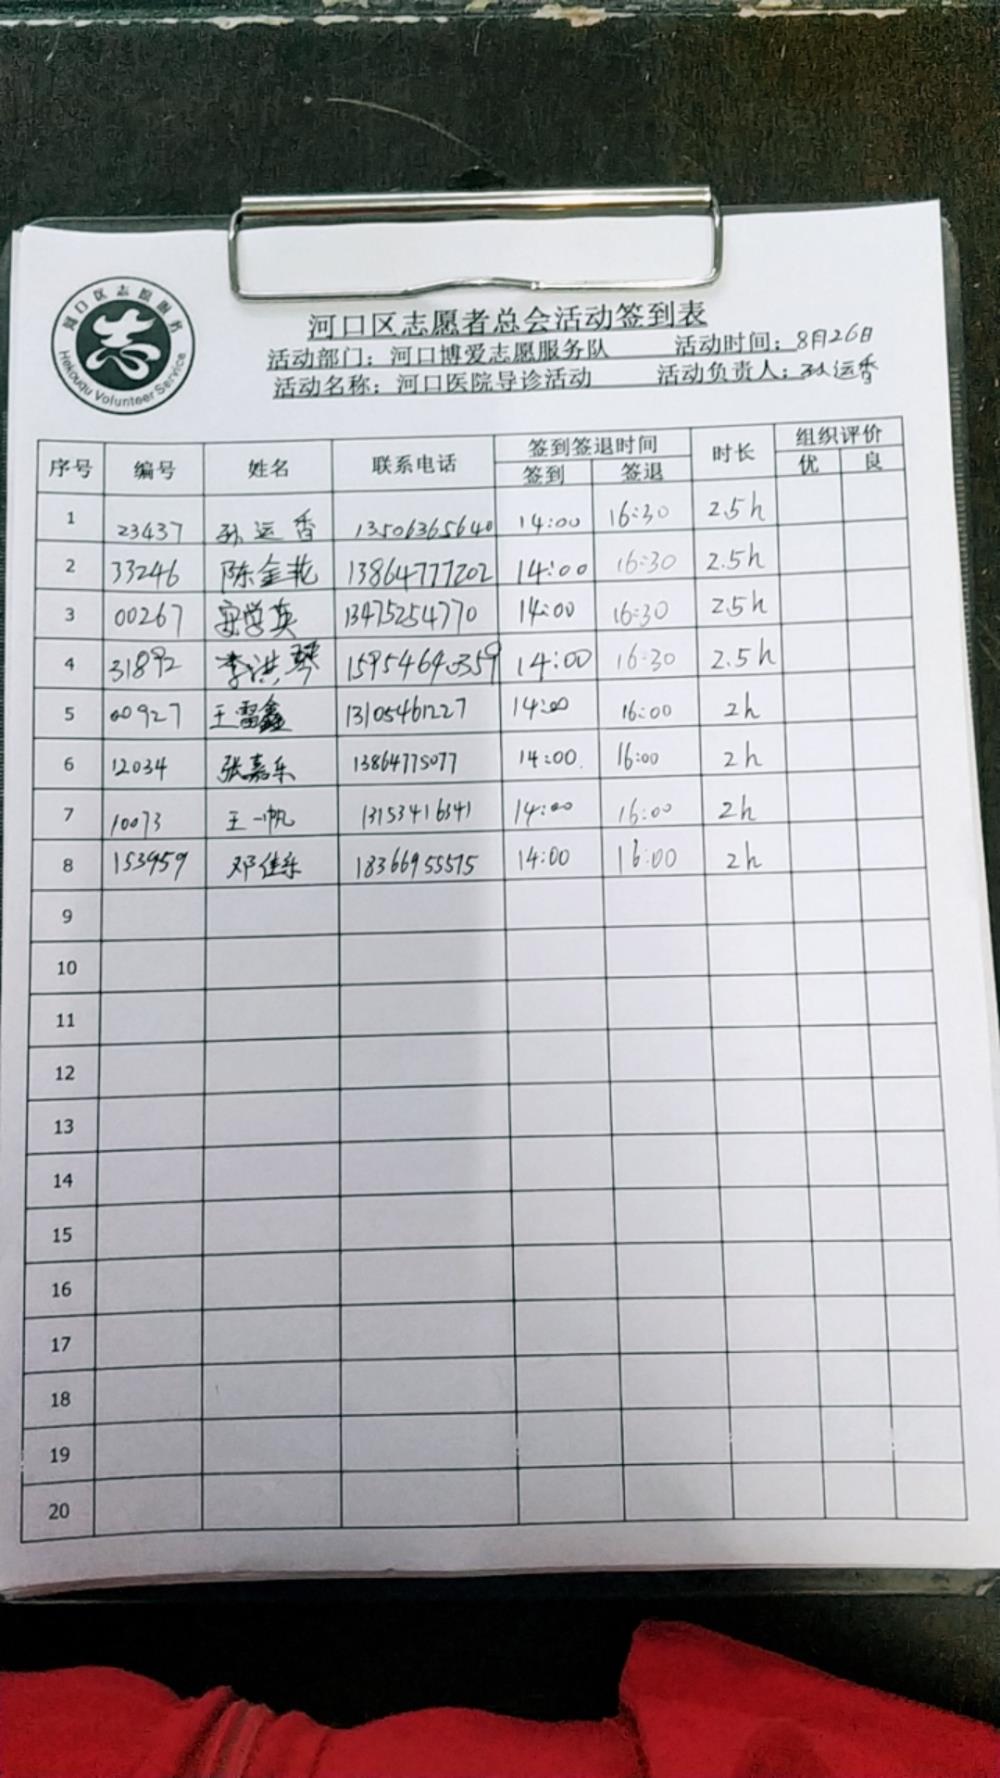 河口区志愿服务
志
Hekouqu Volunteer Service
河口区志愿者总会活动签到表
活动部门：河口博爱志愿服务队 活动时间：8月26日
活动名称：河口医院导诊活动 活动负责人：孙运香
序号 编号 姓名 联系电话 签到签退时间 时长 组织评价
签到 签退 优 良
1 23437 孙运香 13506365640 14:00 16:30 2.5h
2 33246 陈金花 13864777202 14:00 16:30 2.5h
3 00267 安学英 13475254770 14:00 16:30 2.5h
4 31892 李洪琴 15954640359 14:00 16:30 2.5h
5 00927 王雷鑫 13105461227 14:00 16:00 2h
6 12034 张嘉乐 13864775077 14:00 16:00 2h
7 10073 王一帆 13153416341 14:00 16:00 2h
8 153959 邓佳乐 18366955575 14:00 16:00 2h
9
10
11
12
13
14
15
16
17
18
19
20